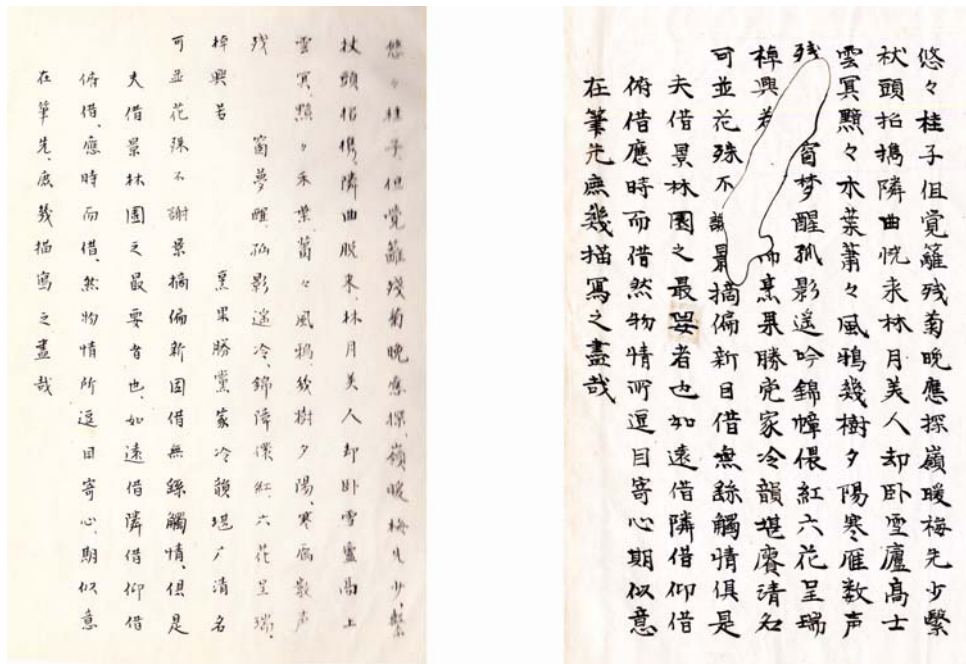 悠々桂子但覚籬残菊晚應探嶺暖梅先少繫
杖頭招携隣曲恍来林月美人却卧雪廬高士
雲冥黯々木葉蕭々風鴉幾樹夕陽寒雁数声
残 窗梦醒孤影遥吟錦幛偎紅六花呈瑞
棹興若 而烹果勝党家冷韻堪賡清名
可並花殊不謝景摘偏新日借無繇觸情俱是
夫借景林園之最要者也如遠借隣借仰借
俯借應時而借然物情所逗目寄心期似意
在筆先庶幾描寫之盡哉
悠々桂子但覺籬殘菊晚應探、嶺暖梅先少、繫
杖頭招携、隣曲脱来、林月美人却卧雪廬高上
雲冥、黯々禾葉蕭々風鴉幾樹夕陽、寒雁数声
残 窗夢醒、孤影遥冷、錦障偎紅、六花呈瑞、
棹興若 烹果勝黨家冷韻堪广清名
可並花殊不謝景摘偏新因借無繇觸情、俱是
夫借景林園之最要者也、如遠借隣借仰借
俯借、應時而借、然物情所逗目寄心、期似意
在筆先、庶幾描寫之盡哉